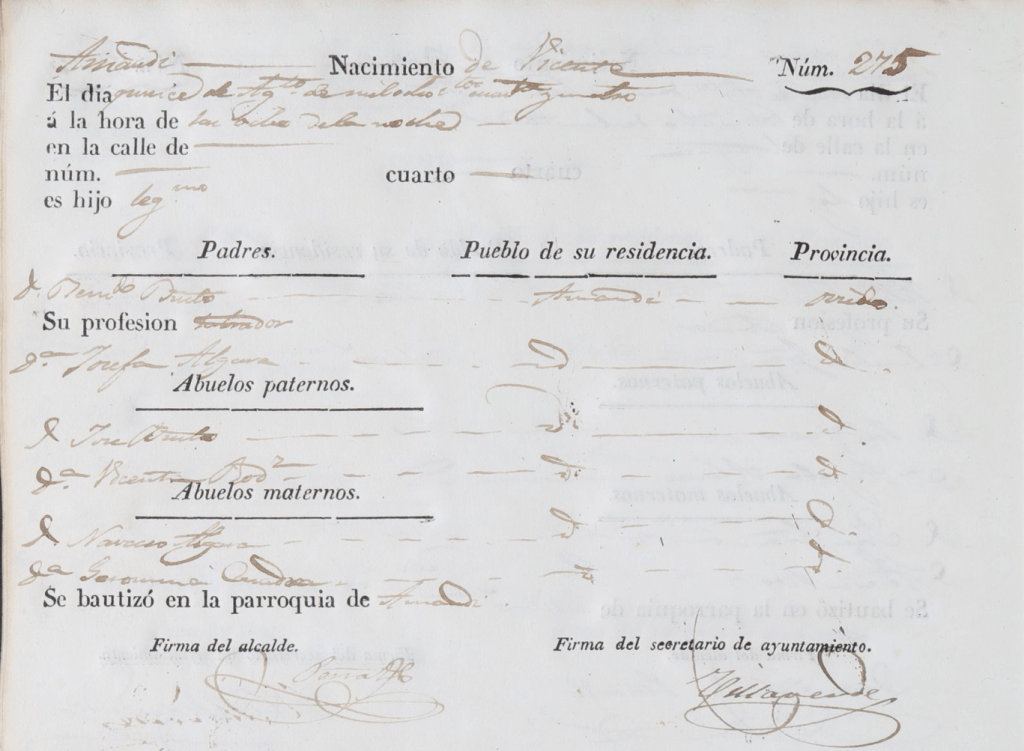 Amandi Nacimiento de Vicente Núm. 275
El dia quince de Agto de mil ocho ctos cuarta y cuatro
á la hora de las ocho de la noche
en la calle de
núm. cuarto
es hijo legmo
Padres. Pueblo de su residencia. Provincia.
Dn. Berndo Busto Amandi Oviedo.
Su profesion labrador
Da. Josefa Algara D D
Abuelos paternos.
D José Busto
Da. Vicenta Rodz
Abuelos maternos.
D. Narciso Algara D
Da Geronima
Se bautizó en la parroquia de Amandi
Firma del alcalde. Firma del secretario de ayuntamiento.
Villaverde